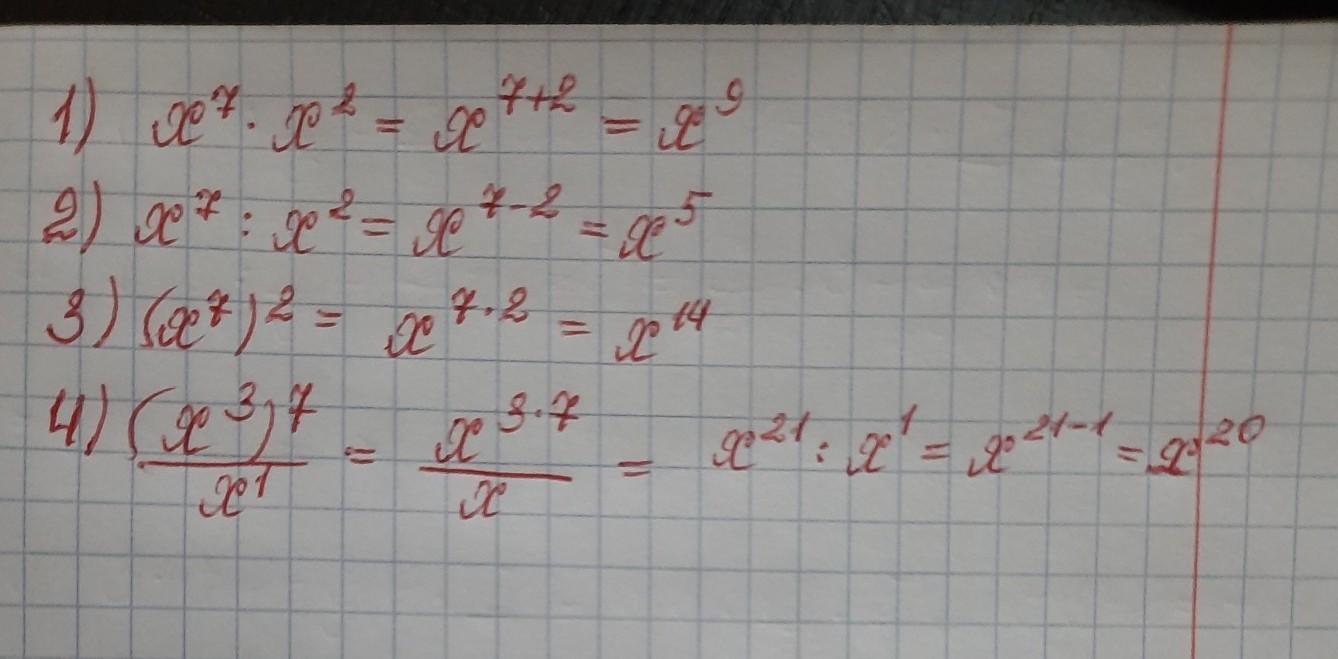 1) x⁷ · x² = x⁷⁺² = x⁹
2) x⁷ : x² = x⁷⁻² = x⁵
3) (x⁷)² = x^{7·2} = x¹⁴
4) (x³)⁷/x¹ = x^{3·7}/x = x²¹ : x¹ = x²¹⁻¹ = x²⁰